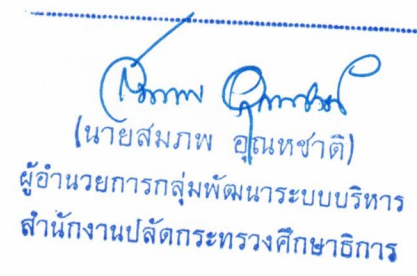 (นายสมภพ อุณหชาติ)
ผู้อำนวยการกลุ่มพัฒนาระบบบริหาร
สำนักงานปลัดกระทรวงศึกษาธิการ